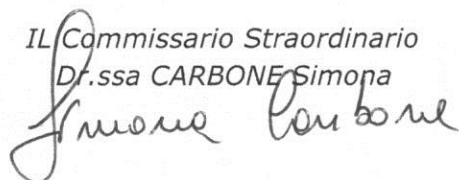 IL Commissario Straordinario
Dr.ssa CARBONE Simona
Simona Carbone